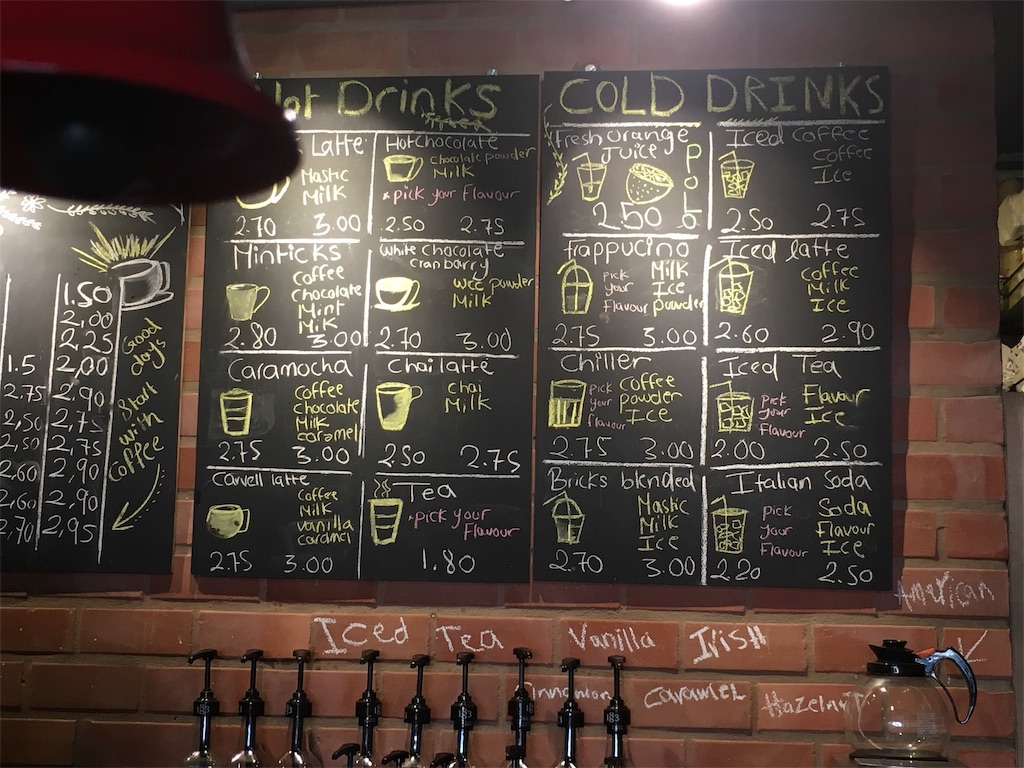 Hot Drinks
Latte
Mastic
Milk
2.70 3.00
Hot chocolate
chocolate powder
Milk
*pick your Flavour
2.50 2.75
Minticks
Coffee
Chocolate
Mint
Milk
2.80 3.00
White Chocolate
Cranbarry
wcc powder
Milk
2.70 3.00
Caramocha
Coffee
Chocolate
Milk
caramel
2.75 3.00
Chai latte
chai
Milk
2.50 2.75
Carvell latte
Coffee
Milk
vanilla
caramel
2.75 3.00
Tea
*pick your
Flavour
1.80
COLD DRINKS
Fresh orange
Juice
2.50
Iced Coffee
Coffee
Ice
2.50 2.75
frappucino
Milk
Ice
powder
pick
your
Flavour
2.75 3.00
Iced latte
Coffee
Milk
Ice
2.60 2.90
Chiller
Coffee
powder
Ice
pick
your
flavour
2.75 3.00
Iced Tea
Flavour
Ice
pick
your
Flavour
2.00 2.50
Bricks blended
Mastic
Milk
Ice
2.70 3.00
Italian Soda
Soda
Flavour
Ice
pick
your
Flavour
2.20 2.50
1.50
2,00
2,25
1.5 2,00
2.75 2,90
2,50 2,75
2,50 2,75
2.60 2,90
2,60 2,90
2,70 2,95
good
days
start
with
coffee
American
Iced Tea Vanilla Irish
Caramel Hazelnut